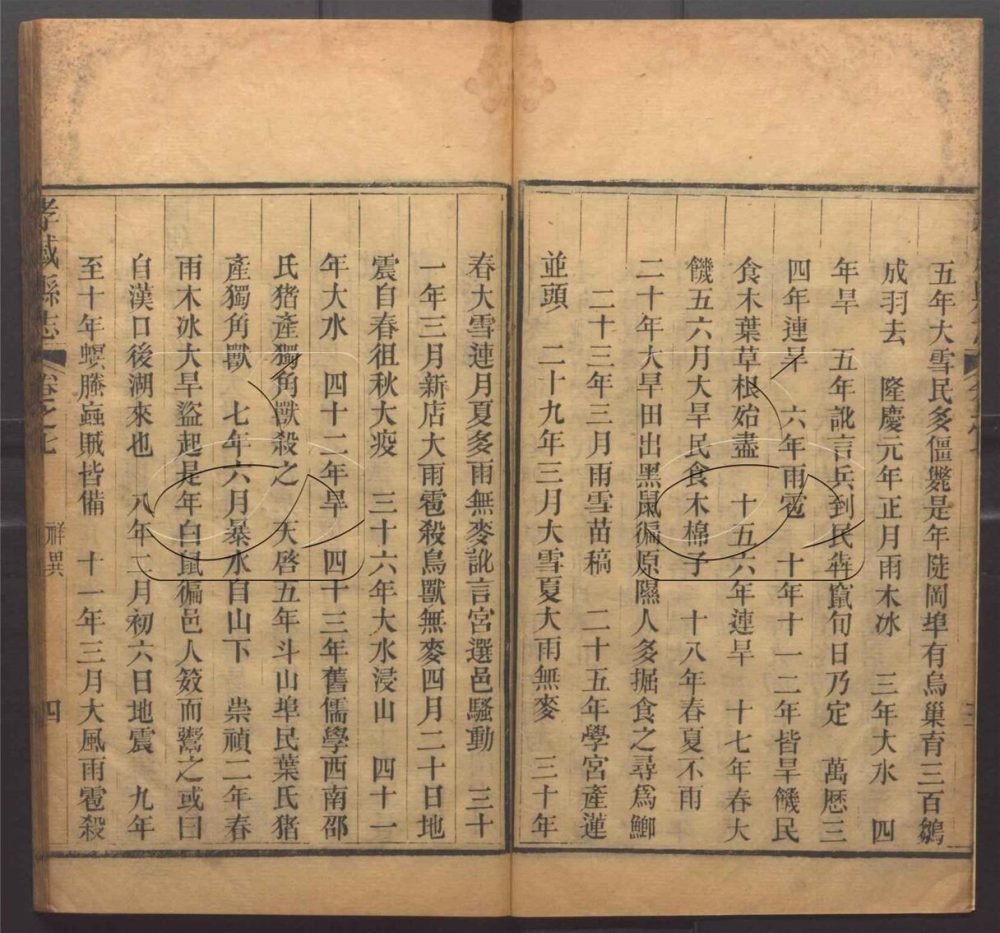 五年大雪民多僵斃是年陡岡埠有烏巢育三百雛
成羽去　隆慶元年正月雨木冰　三年大水　四
年旱　五年訛言兵到民犇竄旬日乃定　萬厯三
四年連旱　六年雨雹　十年十一二年皆旱饑民
食木葉草根始盡　十五六年連旱　十七年春大
饑五六月大旱民食木棉子　十八年春夏不雨
二十年大旱田出黑鼠徧原隰人多掘食之尋爲鯽
二十三年三月雨雪苗稿　二十五年學宮產蓮
並頭　二十九年三月大雪夏大雨無麥　三十年
春大雪連月夏多雨無麥訛言宮選邑騷動　三十
一年三月新店大雨雹殺鳥獸無麥四月二十日地
震自春徂秋大疫　三十六年大水浸山　四十一
年大水　四十二年旱　四十三年舊儒學西南邵
氏猪產獨角獸殺之　天啓五年斗山埠民葉氏猪
產獨角獸　七年六月暴水自山下　崇禎二年春
雨木冰大旱盜起是年白鼠徧邑人笯而鬻之或曰
自漢口後湖來也　八年二月初六日地震　九年
至十年螟螣蟊賊皆備　十一年三月大風雨雹殺
孝感縣志　卷之七　祥異　四